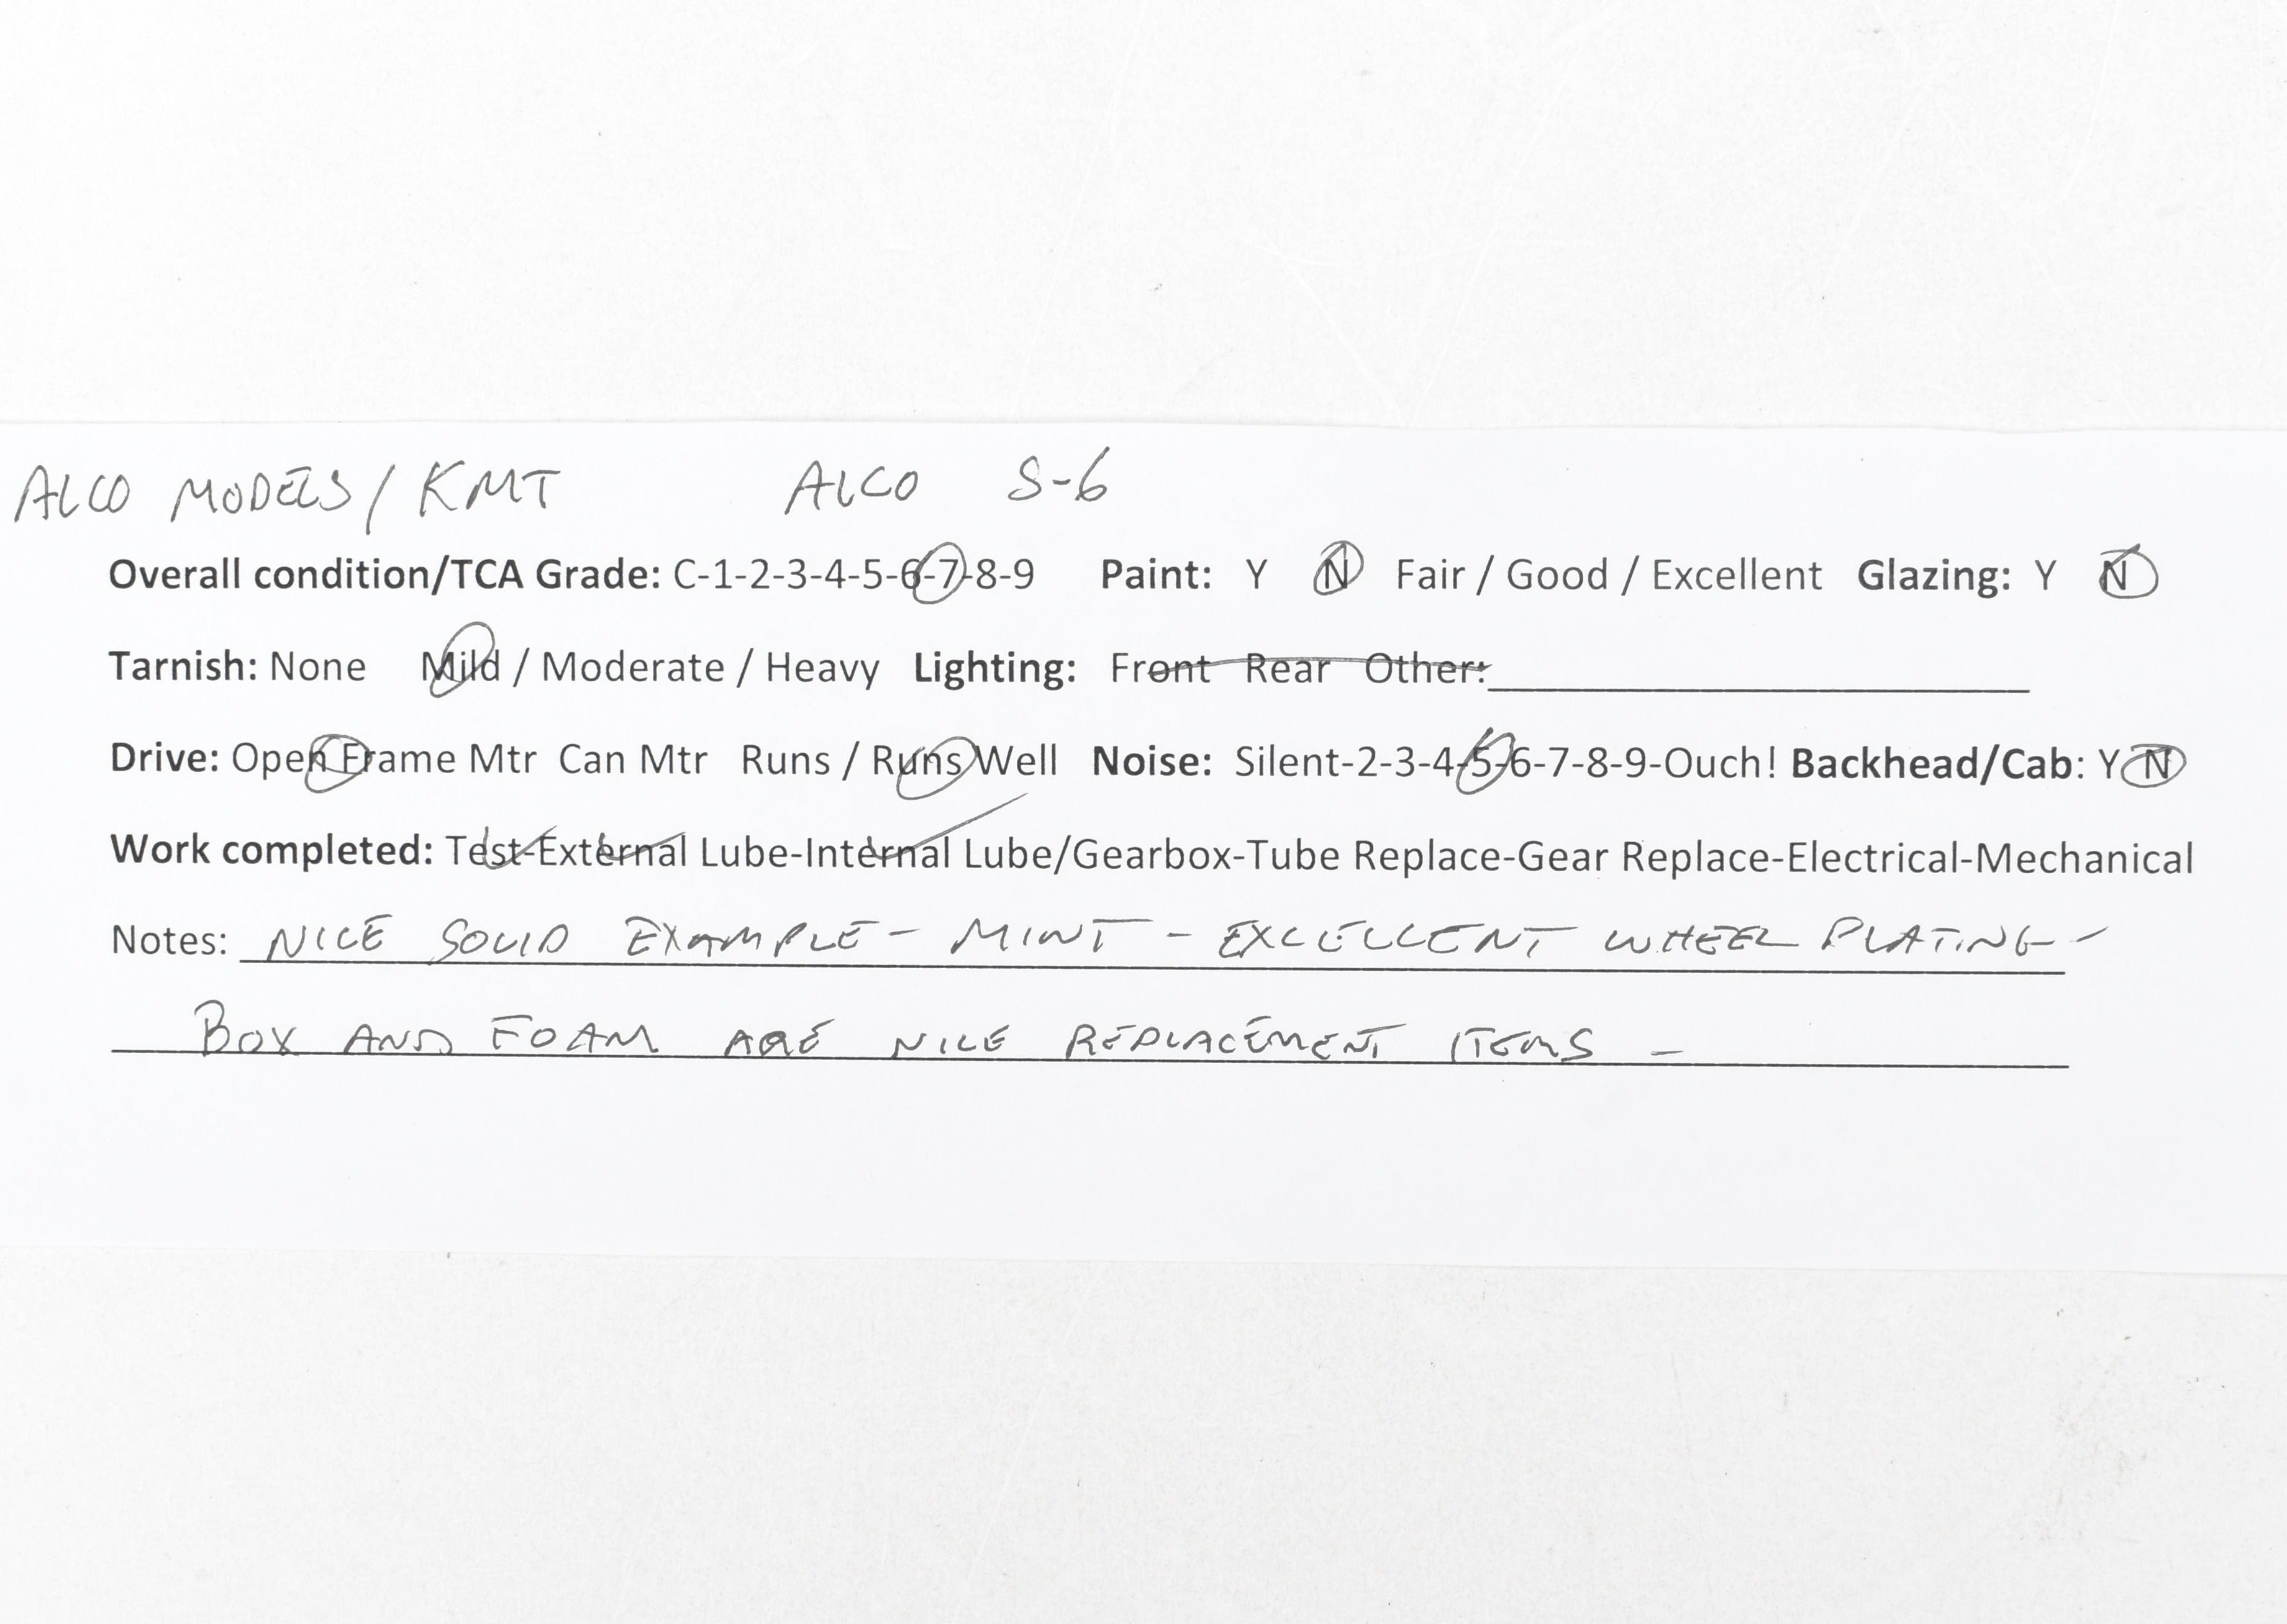 ALCO MODELS/KMT ALCO S-6
Overall condition/TCA Grade: C-1-2-3-4-5-6-7-8-9 Paint: Y N Fair / Good / Excellent Glazing: Y N
Tarnish: None Mild / Moderate / Heavy Lighting: Front Rear Other:
Drive: Open Frame Mtr Can Mtr Runs / Runs Well Noise: Silent-2-3-4-5-6-7-8-9-Ouch! Backhead/Cab: Y N
Work completed: Test-External Lube-Internal Lube/Gearbox-Tube Replace-Gear Replace-Electrical-Mechanical
Notes: NICE SOLID EXAMPLE - MINT - EXCELLENT WHEEL PLATING -
BOX AND FOAM ARE NICE REPLACEMENT ITEMS -